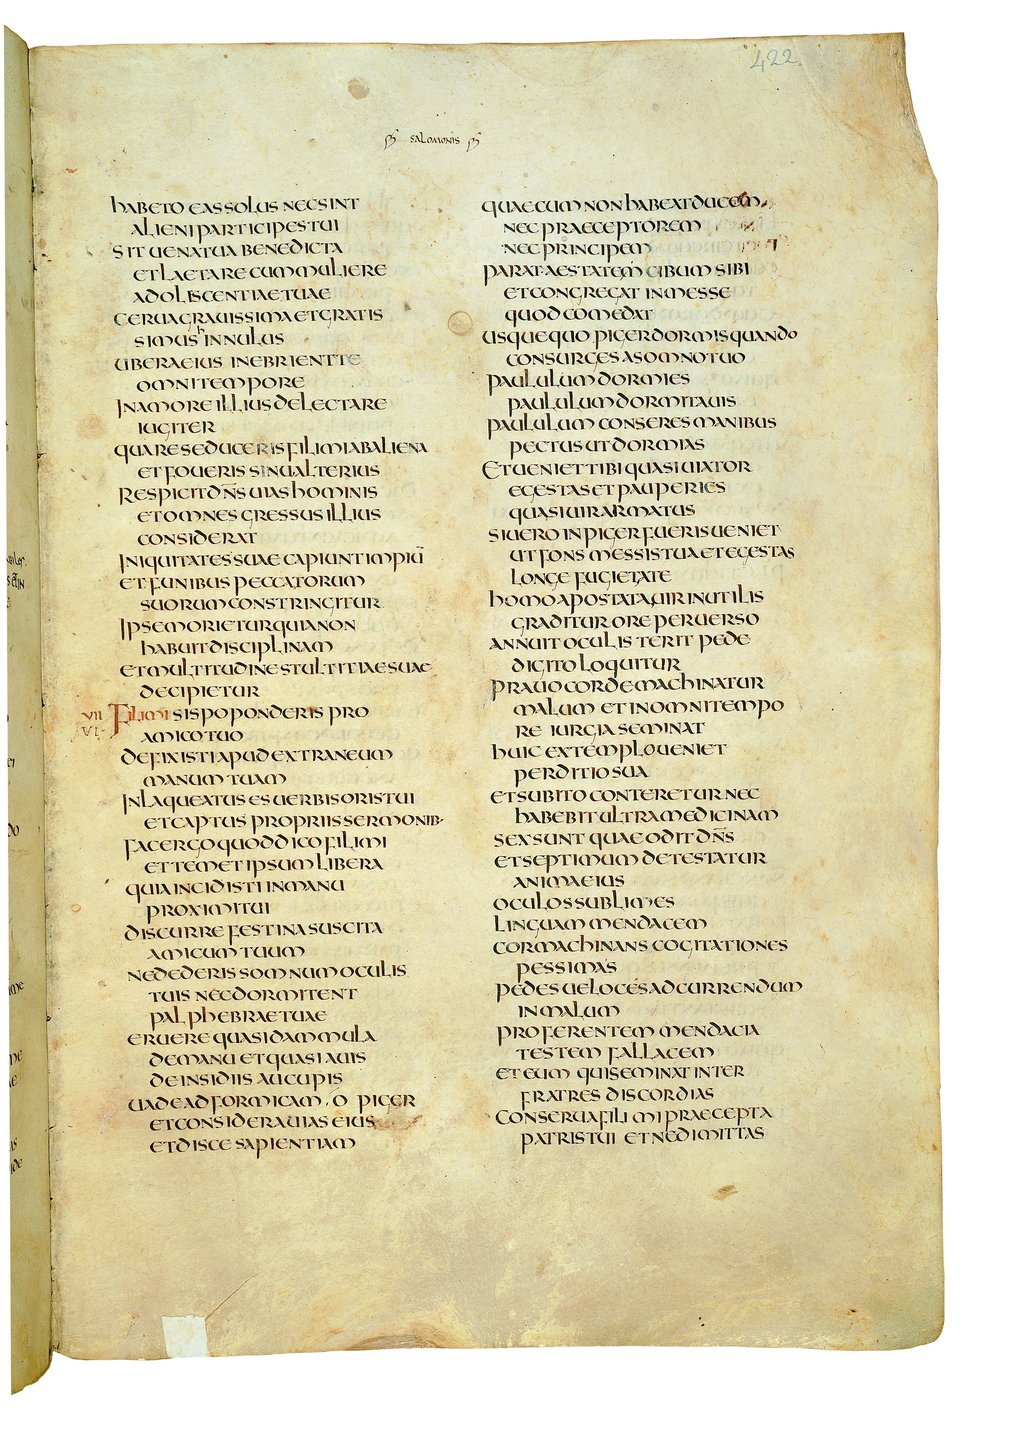 422.
SALOMONIS
HABETO EAS SOLUS NEC SINT
ALIENI PARTICIPES TUI
SIT UENA TUA BENEDICTA
ET LAETARE CUM MULIERE
ADOLISCENTIAE TUAE
CERUA GRAUISSIMA ET GRATIS
SIMUS hINNULUS
UBERA EIUS INEBRIENT TE
OMNI TEMPORE
IN AMORE ILLIUS DELECTARE
IUGITER
QUARE SEDUCERIS FILI MI AB ALIENA
ET FOUERIS SINU ALTERIUS
RESPICIT DN̄S UIAS HOMINIS
ET OMNES GRESSUS ILLIUS
CONSIDERAT
INIQUITATES SUAE CAPIUNT IMPIŪ
ET FUNIBUS PECCATORUM
SUORUM CONSTRINGITUR
IPSE MORIETUR QUIA NON
HABUIT DISCIPLINAM
ET MULTITUDINE STULTITIAE SUAE
DECIPIETUR
VII FILI MI SI SPOPONDERIS PRO
VI AMICO TUO
DEFIXISTI APUD EXTRANEUM
MANUM TUAM
INLAQUEATUS ES UERBIS ORIS TUI
ET CAPTUS PROPRIIS SERMONIB·
FAC ERGO QUOD DICO FILI MI
ET TEMET IPSUM LIBERA
QUIA INCIDISTI IN MANU
PROXIMI TUI
DISCURRE FESTINA SUSCITA
AMICUM TUUM
NE DEDERIS SOMNUM OCULIS
TUIS NEC DORMITENT
PALPHEBRAE TUAE
ERUERE QUASI DAMMULA
DE MANU ET QUASI AUIS
DE INSIDIIS AUCUPIS
UADE AD FORMICAM · O PIGER
ET CONSIDERA UIAS EIUS
ET DISCE SAPIENTIAM
QUAE CUM NON HABEAT DUCEM
NEC PRAECEPTOREM
NEC PRINCIPEM
PARAT AESTATEM CIBUM SIBI
ET CONGREGAT IN MESSE
QUOD COMEDAT
USQUEQUO PIGER DORMIS QUANDO
CONSURGES A SOMNO TUO
PAULULUM DORMIES
PAULULUM DORMITAUIS
PAULULUM CONSERES MANIBUS
PECTUS UT DORMIAS
ET UENIET TIBI QUASI UIATOR
EGESTAS ET PAUPERIES
QUASI UIR ARMATUS
SI UERO INPIGER FUERIS UENIET
UT FONS MESSIS TUA ET EGESTAS
LONGE FUGIET A TE
HOMO APOSTATA UIR INUTILIS
GRADITUR ORE PERUERSO
ANNUIT OCULIS TERIT PEDE
DIGITO LOQUITUR
PRAUO CORDE MACHINATUR
MALUM ET IN OMNI TEMPO
RE IURGIA SEMINAT
HUIC EXTEMPLO UENIET
PERDITIO SUA
ET SUBITO CONTERETUR NEC
HABEBIT ULTRA MEDICINAM
SEX SUNT QUAE ODIT DN̄S
ET SEPTIMUM DETESTATUR
ANIMA EIUS
OCULOS SUBLIMES
LINGUAM MENDACEM
COR MACHINANS COGITATIONES
PESSIMAS
PEDES UELOCES AD CURRENDUM
IN MALUM
PROFERENTEM MENDACIA
TESTEM FALLACEM
ET EUM QUI SEMINAT INTER
FRATRES DISCORDIAS
CONSERUA FILI MI PRAECEPTA
PATRIS TUI ET NE DIMITTAS